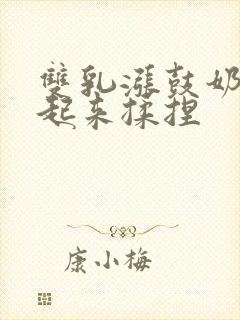 雙乳漲鼓奶
起来揉捏
康小梅